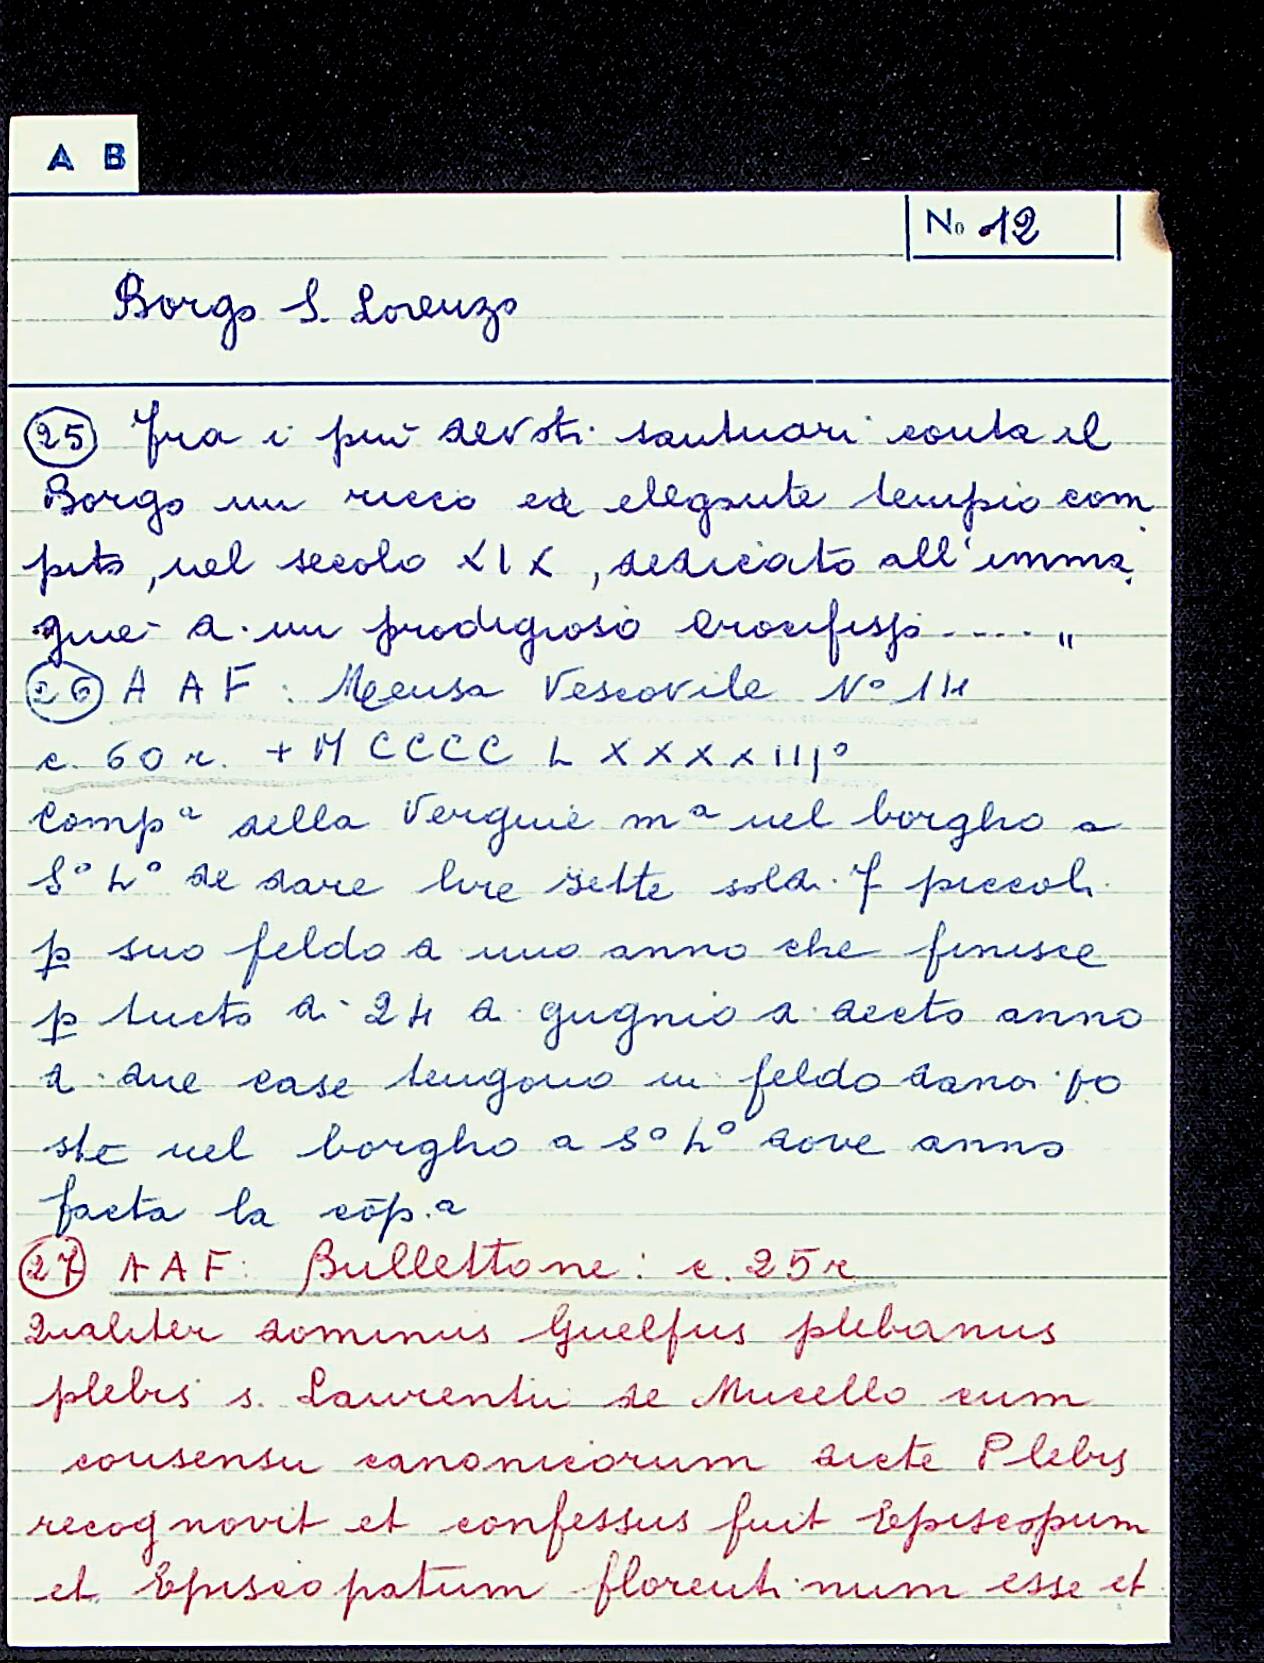 A B
No 12
Borgo S. Lorenzo
25 Fra i più devoti santuari conta il
Borgo un ricco ed elegante tempio com
pito, nel secolo XIX, dedicato all'imma,
gine di un prodigioso Crocifisso ..... "
26 A A F : Mensa Vescovile N° 14
c. 60 r. + M CCCC L XXXXIII°
Compª della Vergine mª nel borgho a
S° L° de dare lire sette soldi 7 piccoli
p suo feldo di uno anno che finisce
p tucto di 24 di gugnio di decto anno
di due case tengono in feldo da noi po
ste nel borgho a S° L° dove anno
facta la cōp.a
27 A A F : Bullettone : c. 25 r
Qualiter dominus Guelfus plebanus
plebis s. Laurentii de Mucello cum
consensu canonicorum dicte Plebis
recognovit et confessus fuit Episcopum
et Episcopatum florentinum esse et